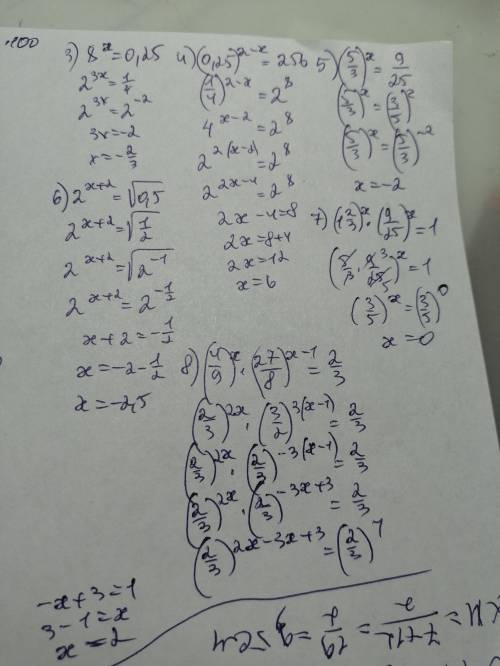 .100
3) 8^x = 0,25
2^{3x} = 1/4
2^{3x} = 2^{-2}
3x = -2
x = -2/3
4) (0,25)^{2-x} = 256
(1/4)^{2-x} = 2^8
4^{x-2} = 2^8
2^{2(x-2)} = 2^8
2^{2x-4} = 2^8
2x - 4 = 8
2x = 8+4
2x = 12
x = 6
5) (5/3)^x = 9/25
(5/3)^x = (3/5)^2
(5/3)^x = (5/3)^{-2}
x = -2
6) 2^{x+2} = √0,5
2^{x+2} = √(1/2)
2^{x+2} = √(2^{-1})
2^{x+2} = 2^{-1/2}
x + 2 = -1/2
x = -2 - 1/2
x = -2,5
7) (1 2/3)^x · (9/25)^x = 1
(5/3 · 9/25)^x = 1
(3/5)^x = (3/5)^0
x = 0
8) (4/9)^x · (27/8)^{x-1} = 2/3
(2/3)^{2x} · (3/2)^{3(x-1)} = 2/3
(2/3)^{2x} · (2/3)^{-3(x-1)} = 2/3
(2/3)^{2x} · (2/3)^{-3x+3} = 2/3
(2/3)^{2x-3x+3} = (2/3)^1
-x + 3 = 1
3 - 1 = x
x = 2